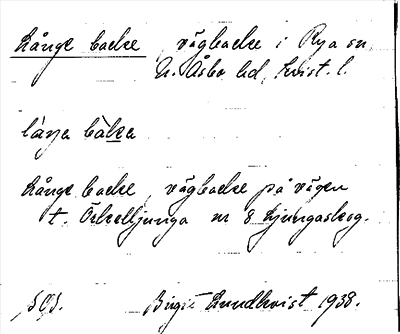 Långe backe, vägbacke i Rya sn,
N. Åsbo hd, Krist. l.
låŋa bàkа
Långe backe, vägbacke på vägen
t. Örkelljunga nr 8 Ljungaskog.
Birgit Lundkvist 1938.